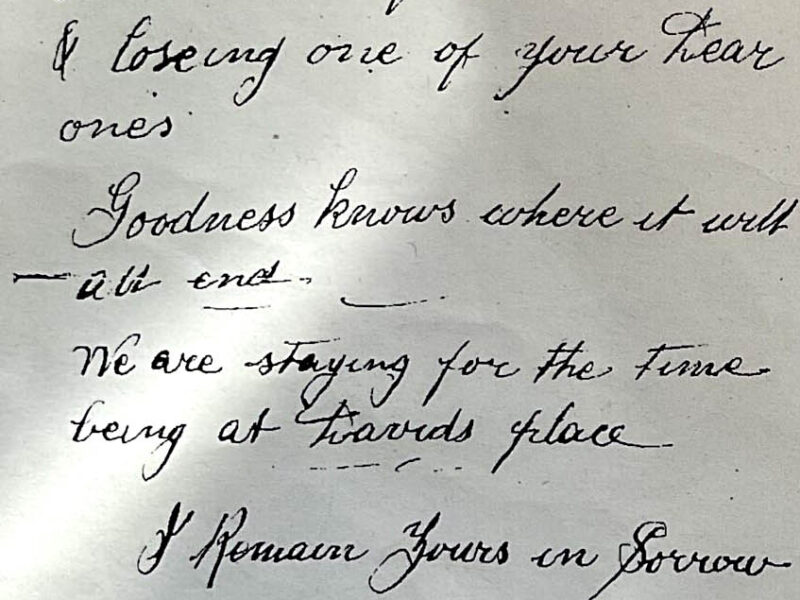 & loseing one of your Dear
ones
Goodness knows where it will
all end.
We are staying for the time
being at Davids place
I Remain Yours in Sorrow